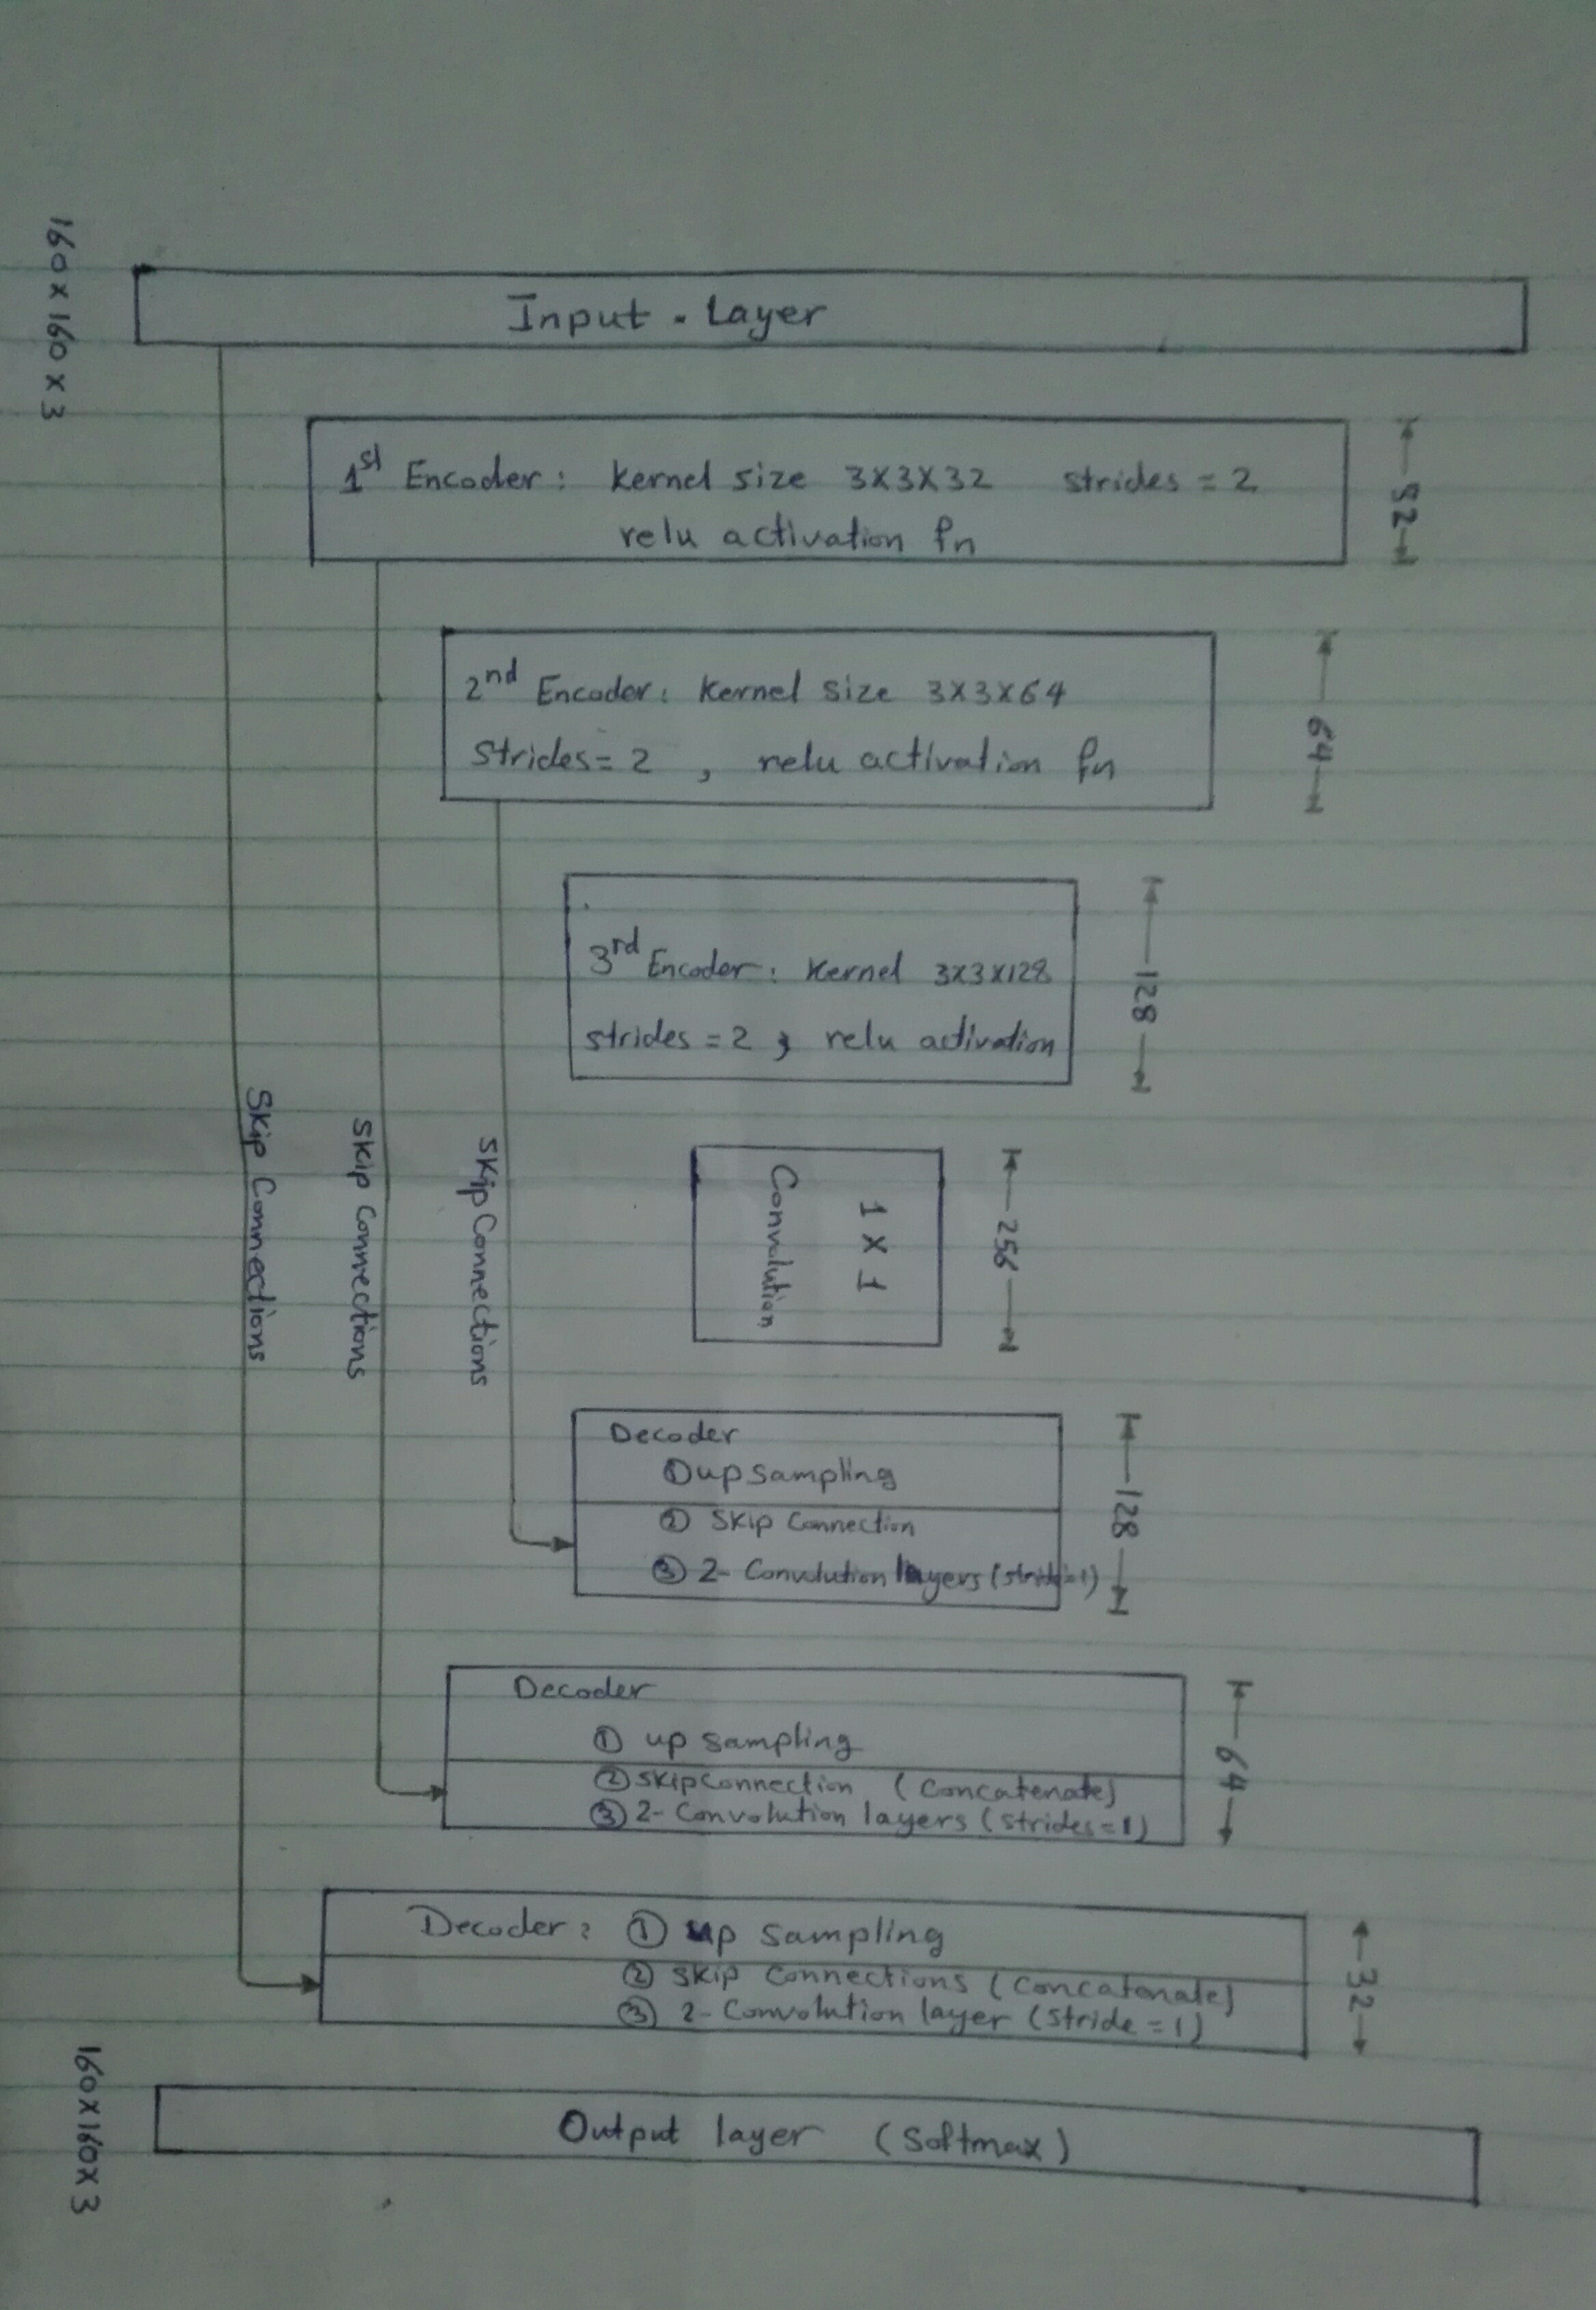 Input - Layer
160 x 160 x 3
32
1st Encoder: kernel size 3x3x32 strides = 2
relu activation fn
64
2nd Encoder: Kernel size 3x3x64
strides = 2 , relu activation fn
128
3rd Encoder: Kernel 3x3x128
strides = 2 , relu activation
256
1 x 1
Convolution
128
Decoder
① upsampling
② Skip Connection
③ 2- Convulution layers (stride=1)
64
Decoder
① up sampling
② skip connection (Concatenate)
③ 2- Convolution layers (strides=1)
32
Decoder: ① up Sampling
② Skip Connections (Concatonate)
③ 2- Convolution layer (stride = 1)
Output layer (Softmax)
160x160x3
Skip Connections
Skip Connections
Skip Connections